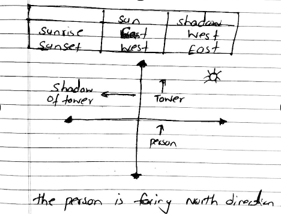 sun shadow
sunrise East West
sunset West East
Shadow
of tower
Tower
person
the person is facing North direction